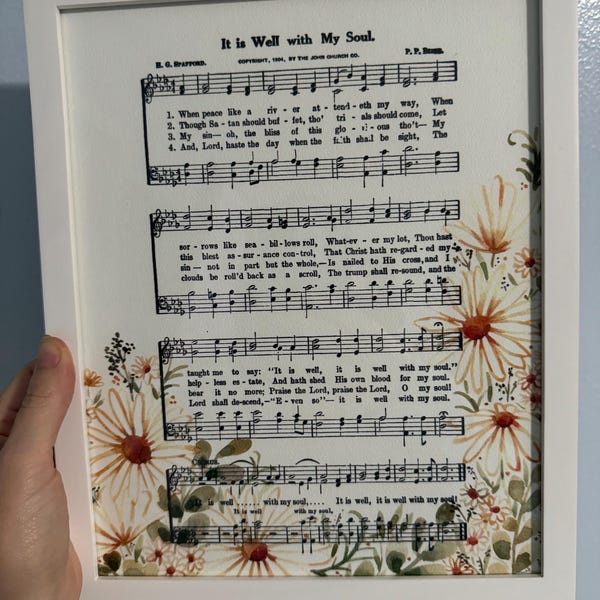 It is Well with My Soul.
H. G. SPAFFORD.
COPYRIGHT, 1904, BY THE JOHN CHURCH CO.
P. P. BLISS.
1. When peace like a riv - er at - tend - eth my way, When
2. Though Sa - tan should buf - fet, tho' tri - als should come, Let
3. My sin— oh, the bliss of this glo - ri - ous tho't— My
4. And, Lord, haste the day when the faith shall be sight, The
sor - rows like sea - bil - lows roll, What-ev - er my lot, Thou hast
this blest as - sur - ance con-trol, That Christ hath re-gard - ed my
sin — not in part but the whole,— Is nailed to His cross, and I
clouds be roll'd back as a scroll, The trump shall re-sound, and the
taught me to say: "It is well, it is well with my soul."
help - less es - tate, And hath shed His own blood for my soul.
bear it no more; Praise the Lord, praise the Lord, O my soul!
Lord shall de-scend,—"E - ven so"— it is well with my soul.
Chorus
is well ...... with my soul, ..... It is well, it is well with my soul!
It is well with my soul,